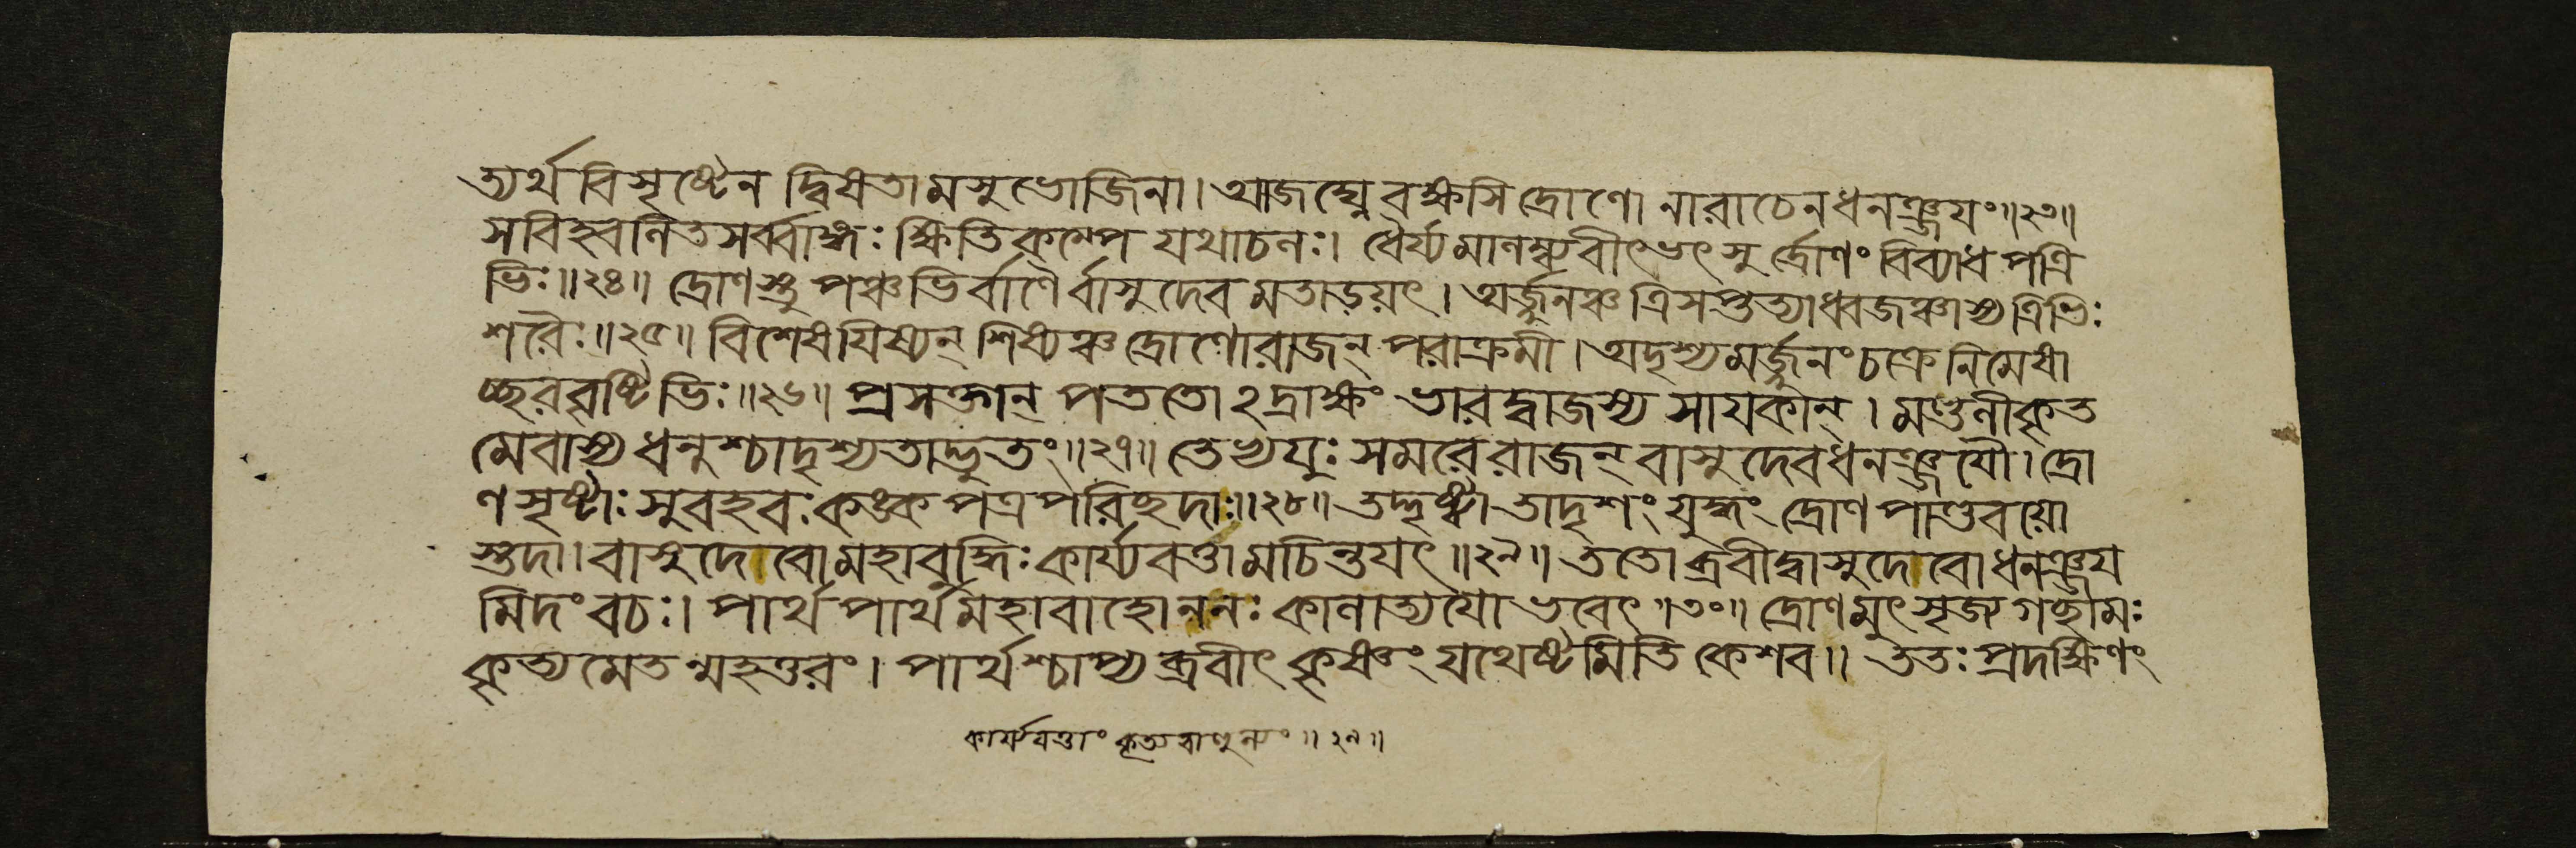 ত্যর্থ বিসৃষ্টেন দ্বিষতামসুভোজিনা। আজঘ্নে বক্ষসি দ্রোণো নারাচেন ধনঞ্জয়ং॥২৩॥
স বিহ্বলিতসর্ব্বাঙ্গঃ ক্ষিতিকম্পে যথাচলঃ। ধৈর্য্যমালম্ব্য বীভৎসু র্দ্রোণং বিব্যাধ পত্রি
ভিঃ॥২৪॥ দ্রোণস্তু পঞ্চভির্বাণৈর্বাসুদেবমতাড়য়ৎ। অর্জ্জুনঞ্চ ত্রিসপ্তত্যা ধ্বজঞ্চাস্য ত্রিভিঃ
শরৈঃ॥২৫॥ বিশেষয়িষ্যন্ শিষ্যঞ্চ দ্রোণো রাজন্ পরাক্রমী। অদৃশ্যমর্জ্জুনং চক্রে নিমেষা
চ্ছরবৃষ্টিভিঃ॥২৬॥ প্রসক্তান্ পততোঽদ্রাক্ষং ভারদ্বাজস্য সায়কান্। মণ্ডলীকৃত
মেবাস্য ধনুশ্চাদৃশ্যতাদ্ভুতং॥২৭॥ তেঽভ্যয়ুঃ সমরে রাজন্ বাসুদেবধনঞ্জয়ৌ। দ্রো
ণসৃষ্টাঃ সুবহবঃ কঙ্কপত্রপরিচ্ছদাঃ॥২৮॥ তদ্দৃষ্ট্বা তাদৃশং যুদ্ধং দ্রোণপাণ্ডবয়ো
স্তদা। বাসুদেবো মহাবুদ্ধিঃ কার্য্যবত্তামচিন্তয়ৎ॥২৯॥ ততোব্রবীদ্বাসুদেবো ধনঞ্জয়
মিদং বচঃ। পার্থ পার্থ মহাবাহো ন নঃ কালাত্যয়ো ভবেৎ॥৩০॥ দ্রোণমুৎসৃজ্য গচ্ছামঃ
কৃত্যমেতন্মহত্তরং। পার্থশ্চাপ্যব্রবীৎ কৃষ্ণং যথেষ্টমিতি কেশব॥ ততঃ প্রদক্ষিণং
কার্য্যবত্তাং কৃত্যবাহুল্যং॥২৯॥